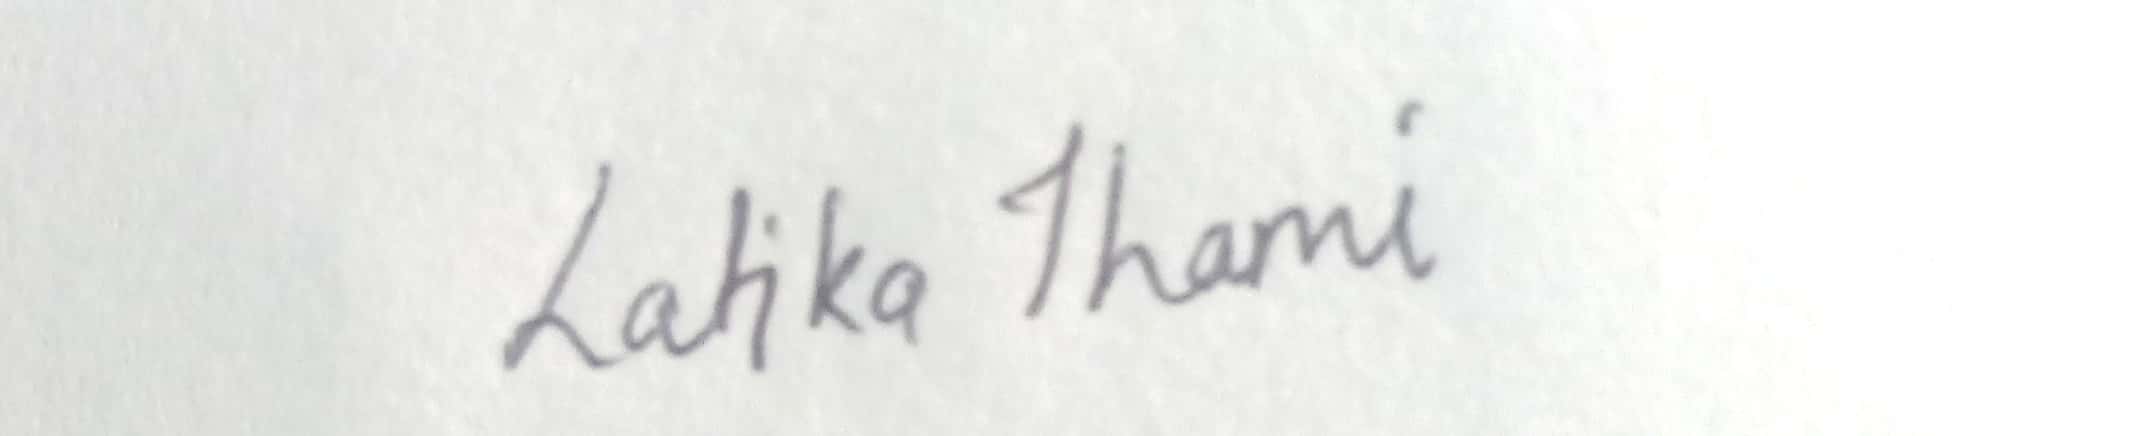 Latika Thami